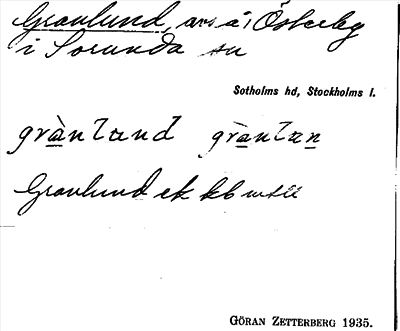 Granlund, avs å, Österby
i Sorunda sn
Sotholms hd, Stockholms l.
grànlund grànlun
Granlund ek kb
GÖRAN ZETTERBERG 1935.